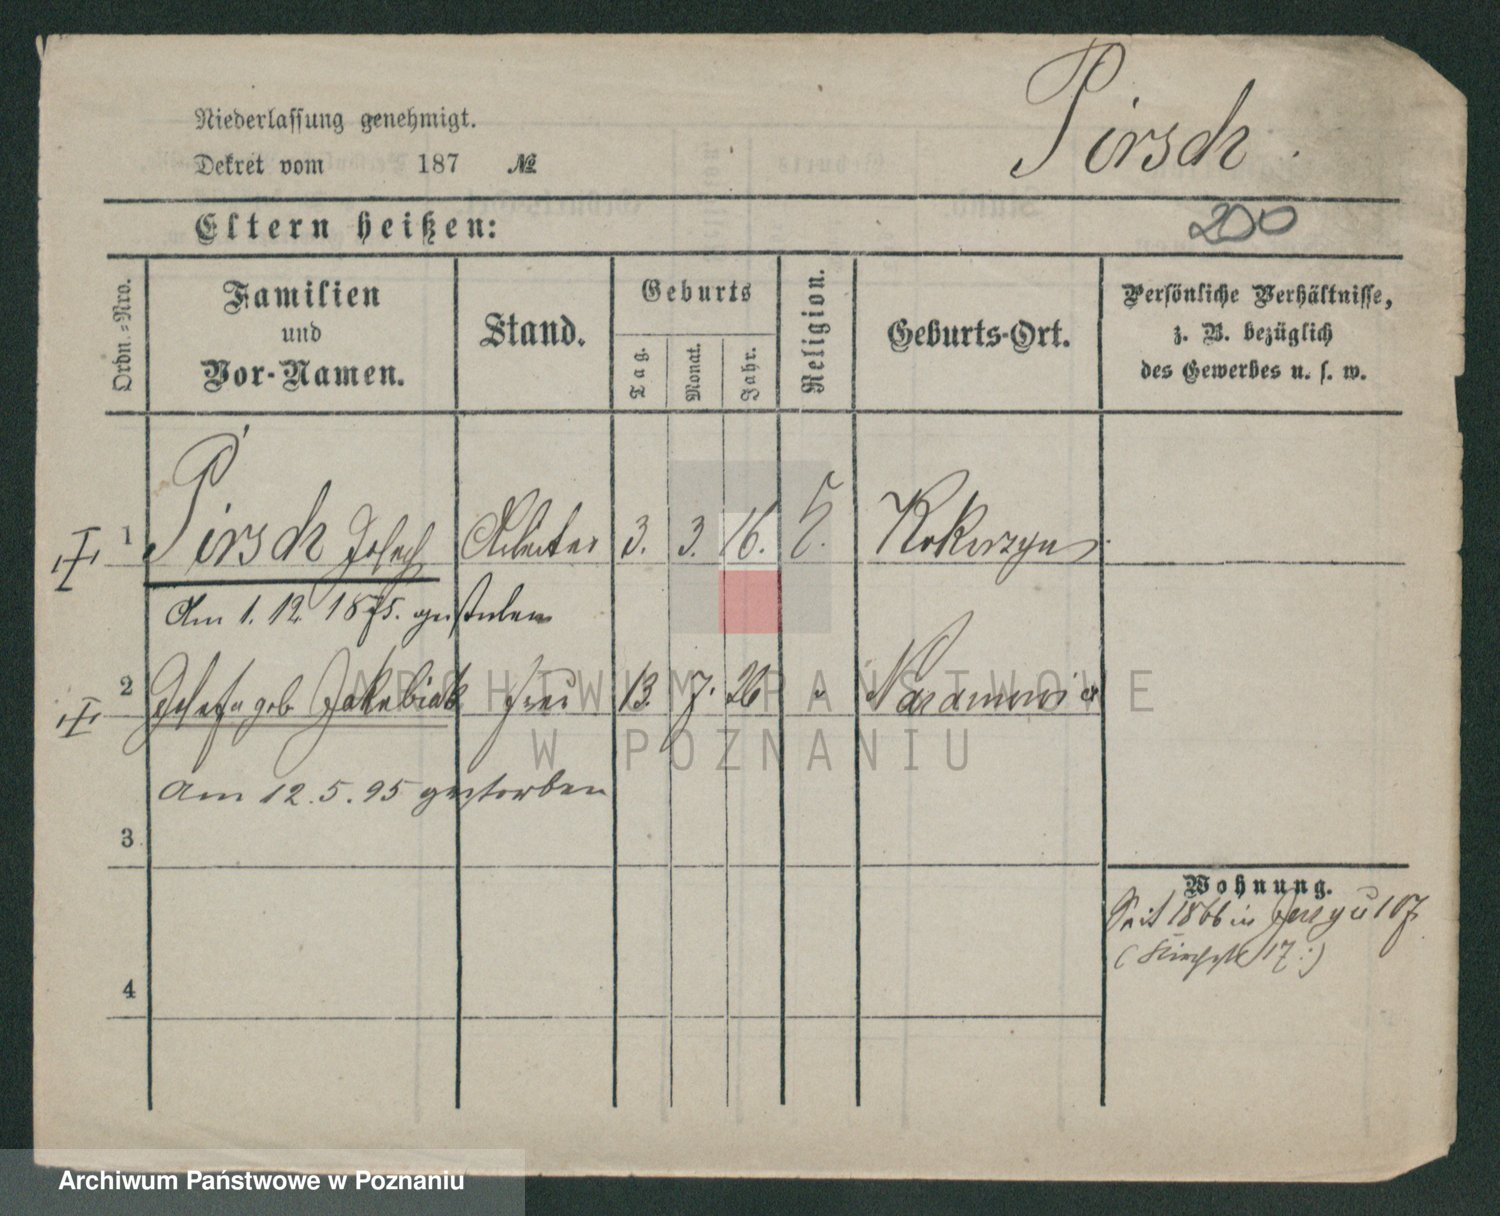 Pirsch.
Niederlassung genehmigt.
Dekret vom 187 №
Eltern heißen:
200
Ordn.=Nro.
Familien
und
Vor-Namen.
Stand.
Geburts
Tag.
Monat.
Jahr.
Religion.
Geburts-Ort.
Persönliche Verhältnisse,
z. B. bezüglich
des Gewerbes u. s. w.
1 Pirsch Josech Arbeiter 3. 3. 16. Kokorzyn
Am 1. 12. 1875. gestorben
2 Josefa geb Jakubiak Frau 13. 7. 26 " Naramowice
Am 12.5.95 gestorben
3
Wohnung.
Seit 1866 in Jersyce 107
(Kirchstr 17:)
4
ARCHIWUM PAŃSTWOWE
W POZNANIU
Archiwum Państwowe w Poznaniu